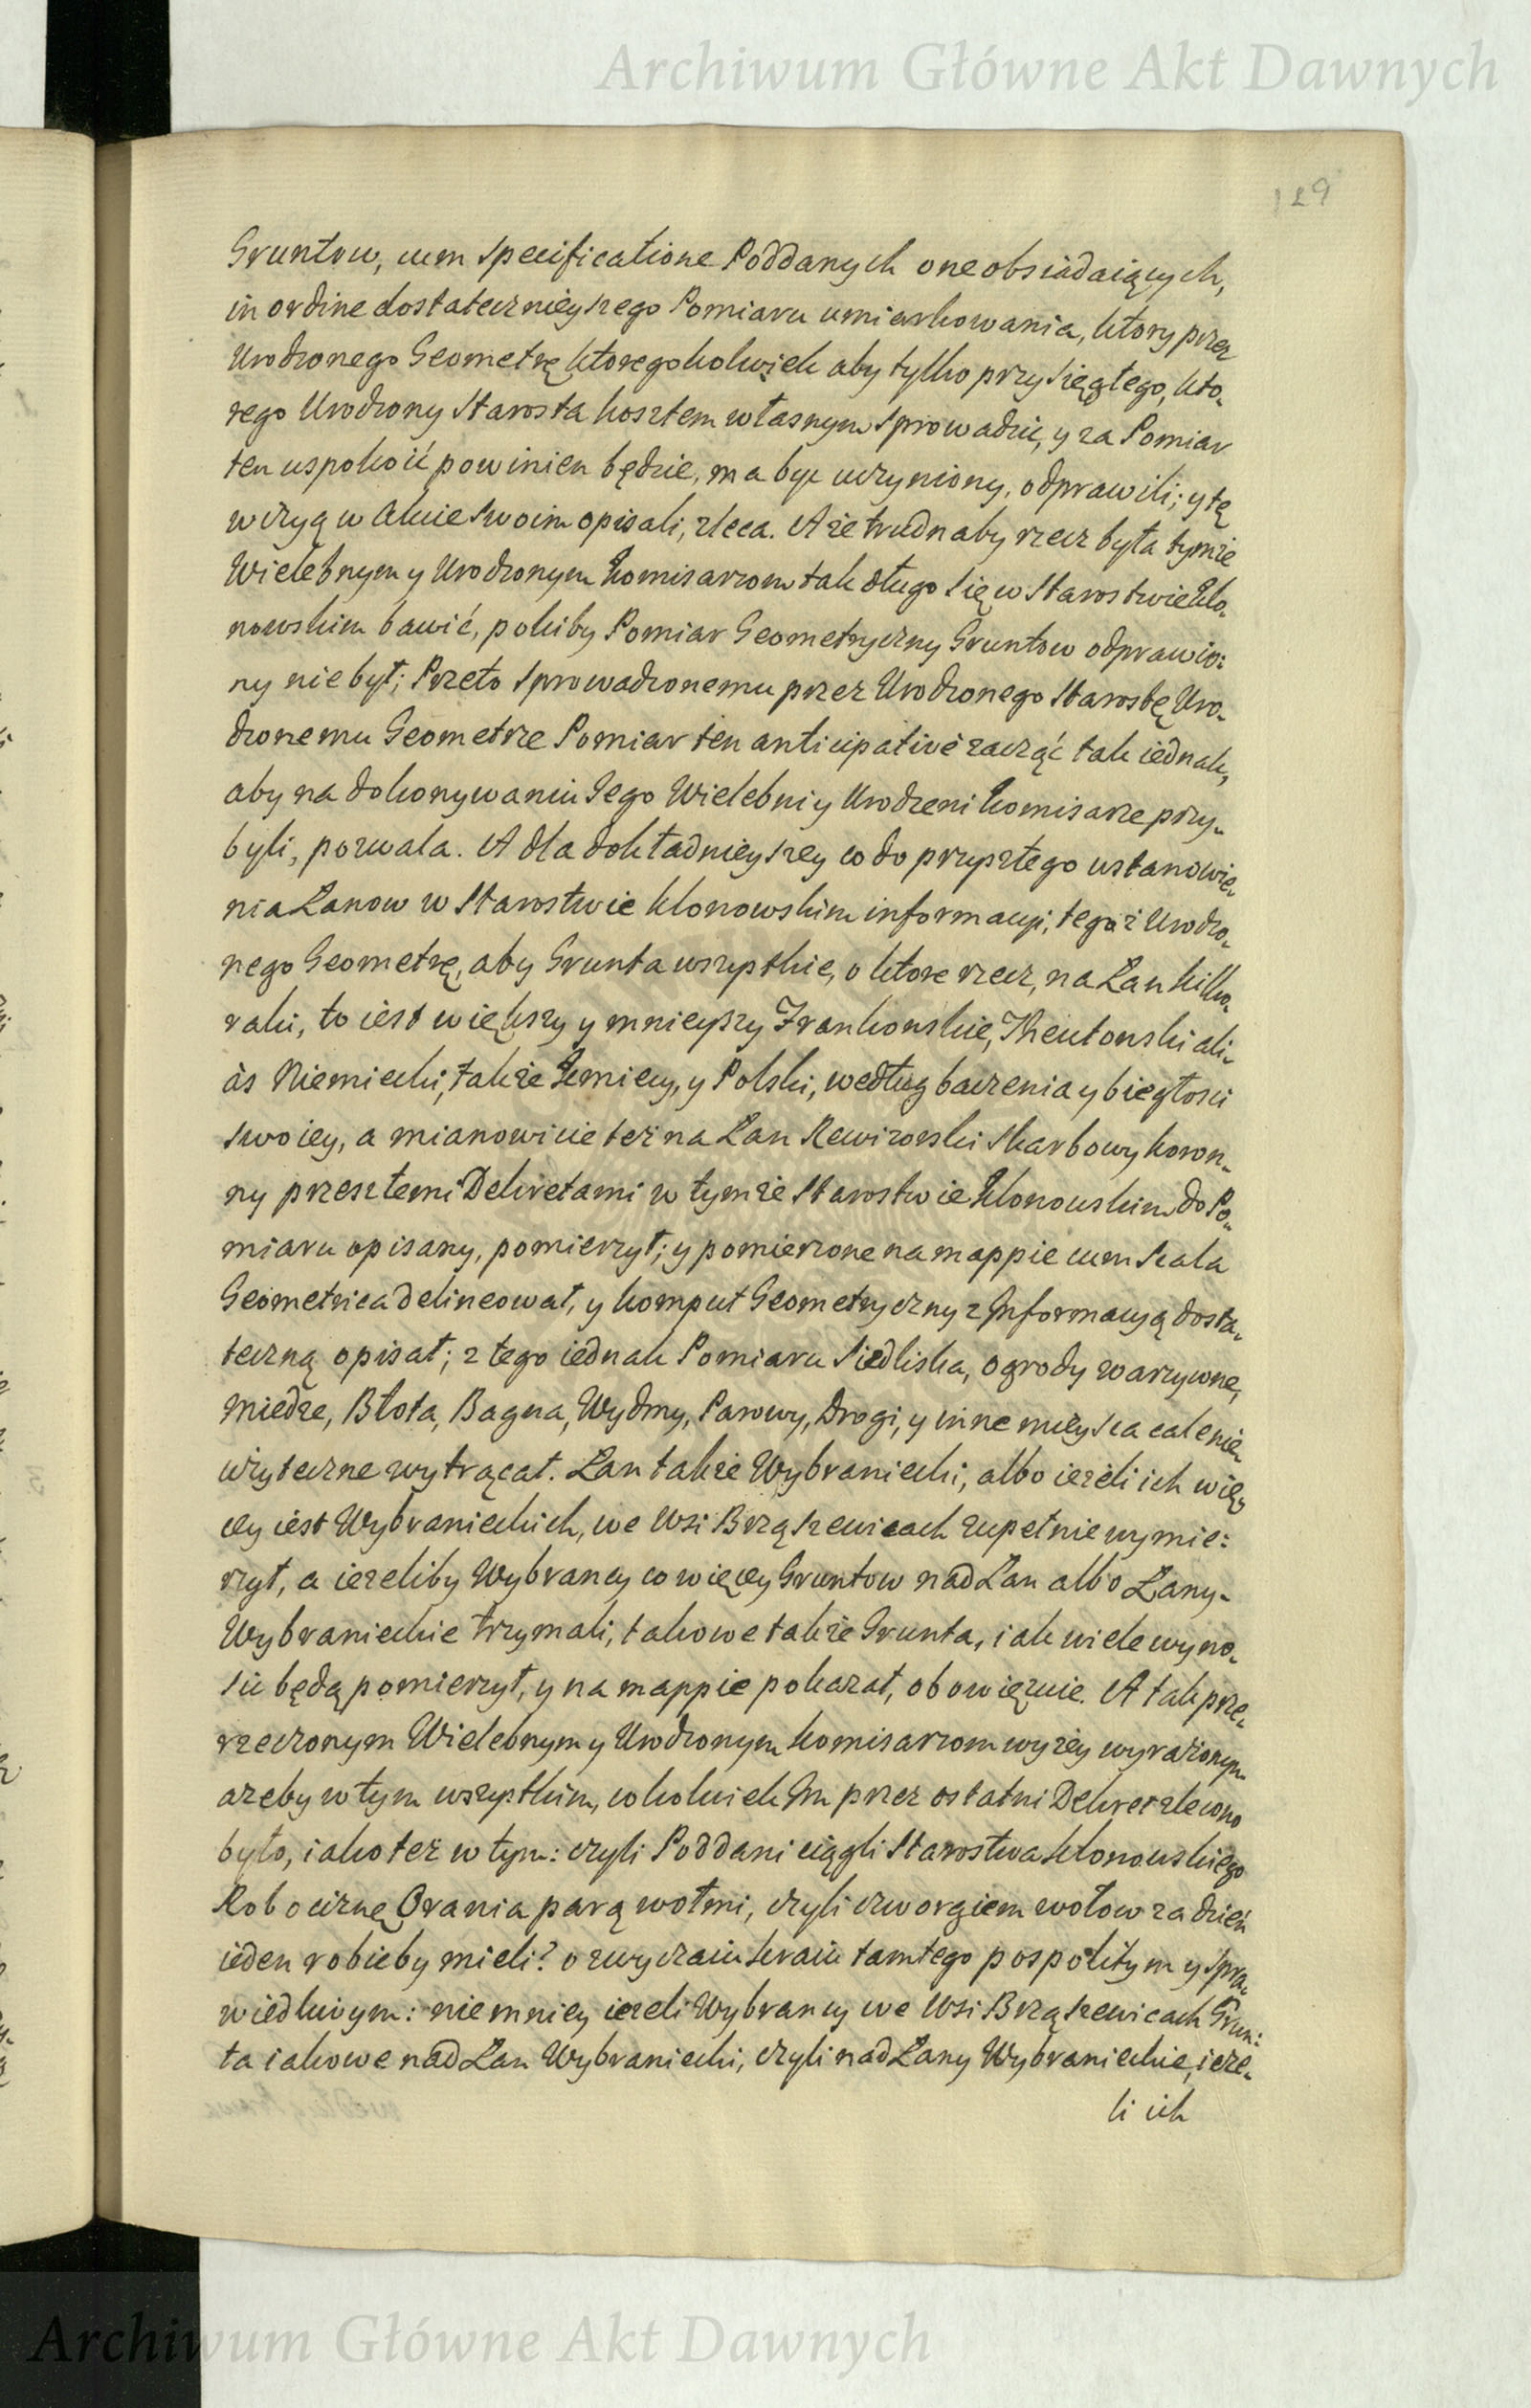 Archiwum Główne Akt Dawnych
129
Gruntow, cum specificatione Poddanych one obsiadaiących,
in ordine dostatecznieyszego Pomiaru umiarkowania, ktory przez
Urodzonego Geometrę ktoregokolwiek aby tylko przysięgłego, kto„
rego Urodzony Starosta kosztem własnym sprowadzić, y za Pomiar
ten uspokoić powinien będzie, ma być uczyniony, odprawili; y tę
wizyą w Akcie swoim opisali, zleca. A że trudna by rzecz była tymże
Wielebnym y Urodzonym Komisarzom tak długo się w Starostwie Klo„
nowskim bawić, pokiby Pomiar Geometryczny Gruntow odprawio:
ny nie był; Przeto sprowadzonemu przez Urodzonego Starostę Uro„
dzonemu Geometrze Pomiar ten anticipativè zacząć tak iednak,
aby na dokonywaniu Jego Wielebni y Urodzeni Komisarze przy„
byli, pozwala. A dla dokładnieyszey co do przyszłego ustanowie„
nia Łanow w Starostwie Klonowskim informacyi, tegoż Urodzo„
nego Geometrę, aby Grunta wszystkie, o ktore rzecz, na Łan kilko„
raki, to iest większy y mnieyszy Frankonskie, Theutonski ali„
às Niemiecki, także Kmiecy, y Polski, według baczenia y biegłosci
swoiey, a mianowicie też na Łan Rewizorski Skarbowy koron„
ny przeszłemi Dekretami w tymże Starostwie Klonowskim do Po„
miaru opisany, pomierzył; y pomierzone na mappie cum Scala
Geometrica delineował, y komput Geometryczny z Informacyą dosta„
teczną opisał; z tego iednak Pomiaru Siedliska, ogrody warzywne,
Miedze, Błota, Bagna, Wydmy, Parowy, Drogi, y inne mieysca cale nie„
użyteczne wytrącał. Łan także Wybraniecki, albo ieżeli ich wię„
cey iest Wybranieckich, we Wsi Brząszewicach zupełnie wymie:
rzył, a ieżeliby Wybrancy co więcey Gruntow nad Łan albo Łany„
Wybranieckie trzymali, takowe także Grunta, iak wiele wyno„
sić będą pomierzył, y na mappie pokazał, obowięzuie. A tak prze„
rzeczonym Wielebnym y Urodzonym Komisarzom wyżey wyrażonym
ażeby w tym wszystkim, cokolwiek Im przez ostatni Dekret zlecono
było, iako też w tym: czyli Poddani ciągli Starostwa Klonowskiego
Robociznę Orania parą wołmi, czyli czworgiem wołow za dzień
ieden robić by mieli? o zwyczaiu kraiu tamtego pospolitym y spra„
wiedliwym: niemniey ieżeli Wybrancy we Wsi Brząszewicach Grun:
ta iakowe nad Łan Wybraniecki, czyli nad Łany Wybranieckie, ieże„
li ich
Archiwum Główne Akt Dawnych